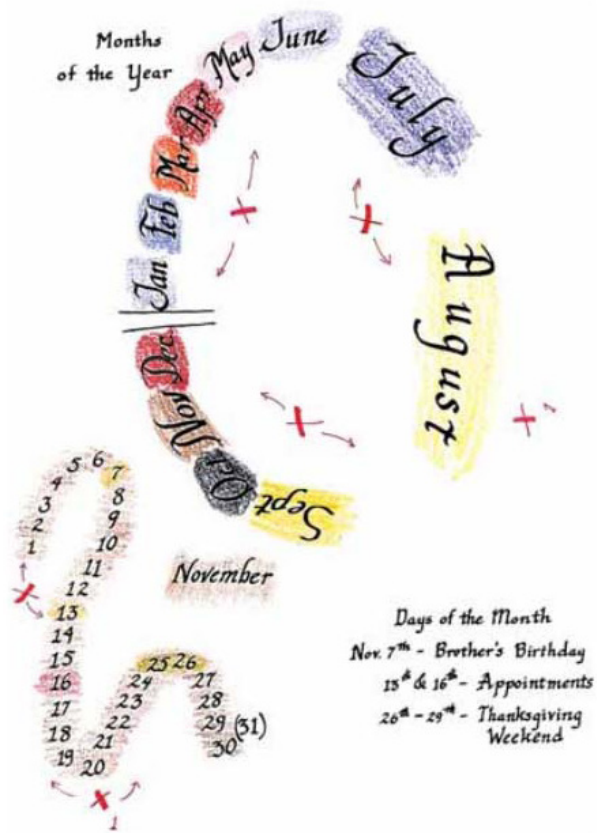 Months
of the Year
Jan
Feb
Mar
Apr
May
June
July
August
Sept
Oct
Nov
Dec
1
2
3
4
5
6
7
8
9
10
11
12
13
14
15
16
17
18
19
20
21
22
23
24
25
26
27
28
29
(31)
30
1
November
Days of the Month
Nov. 7th - Brother's Birthday
13th & 16th - Appointments
26th - 29th - Thanksgiving
Weekend